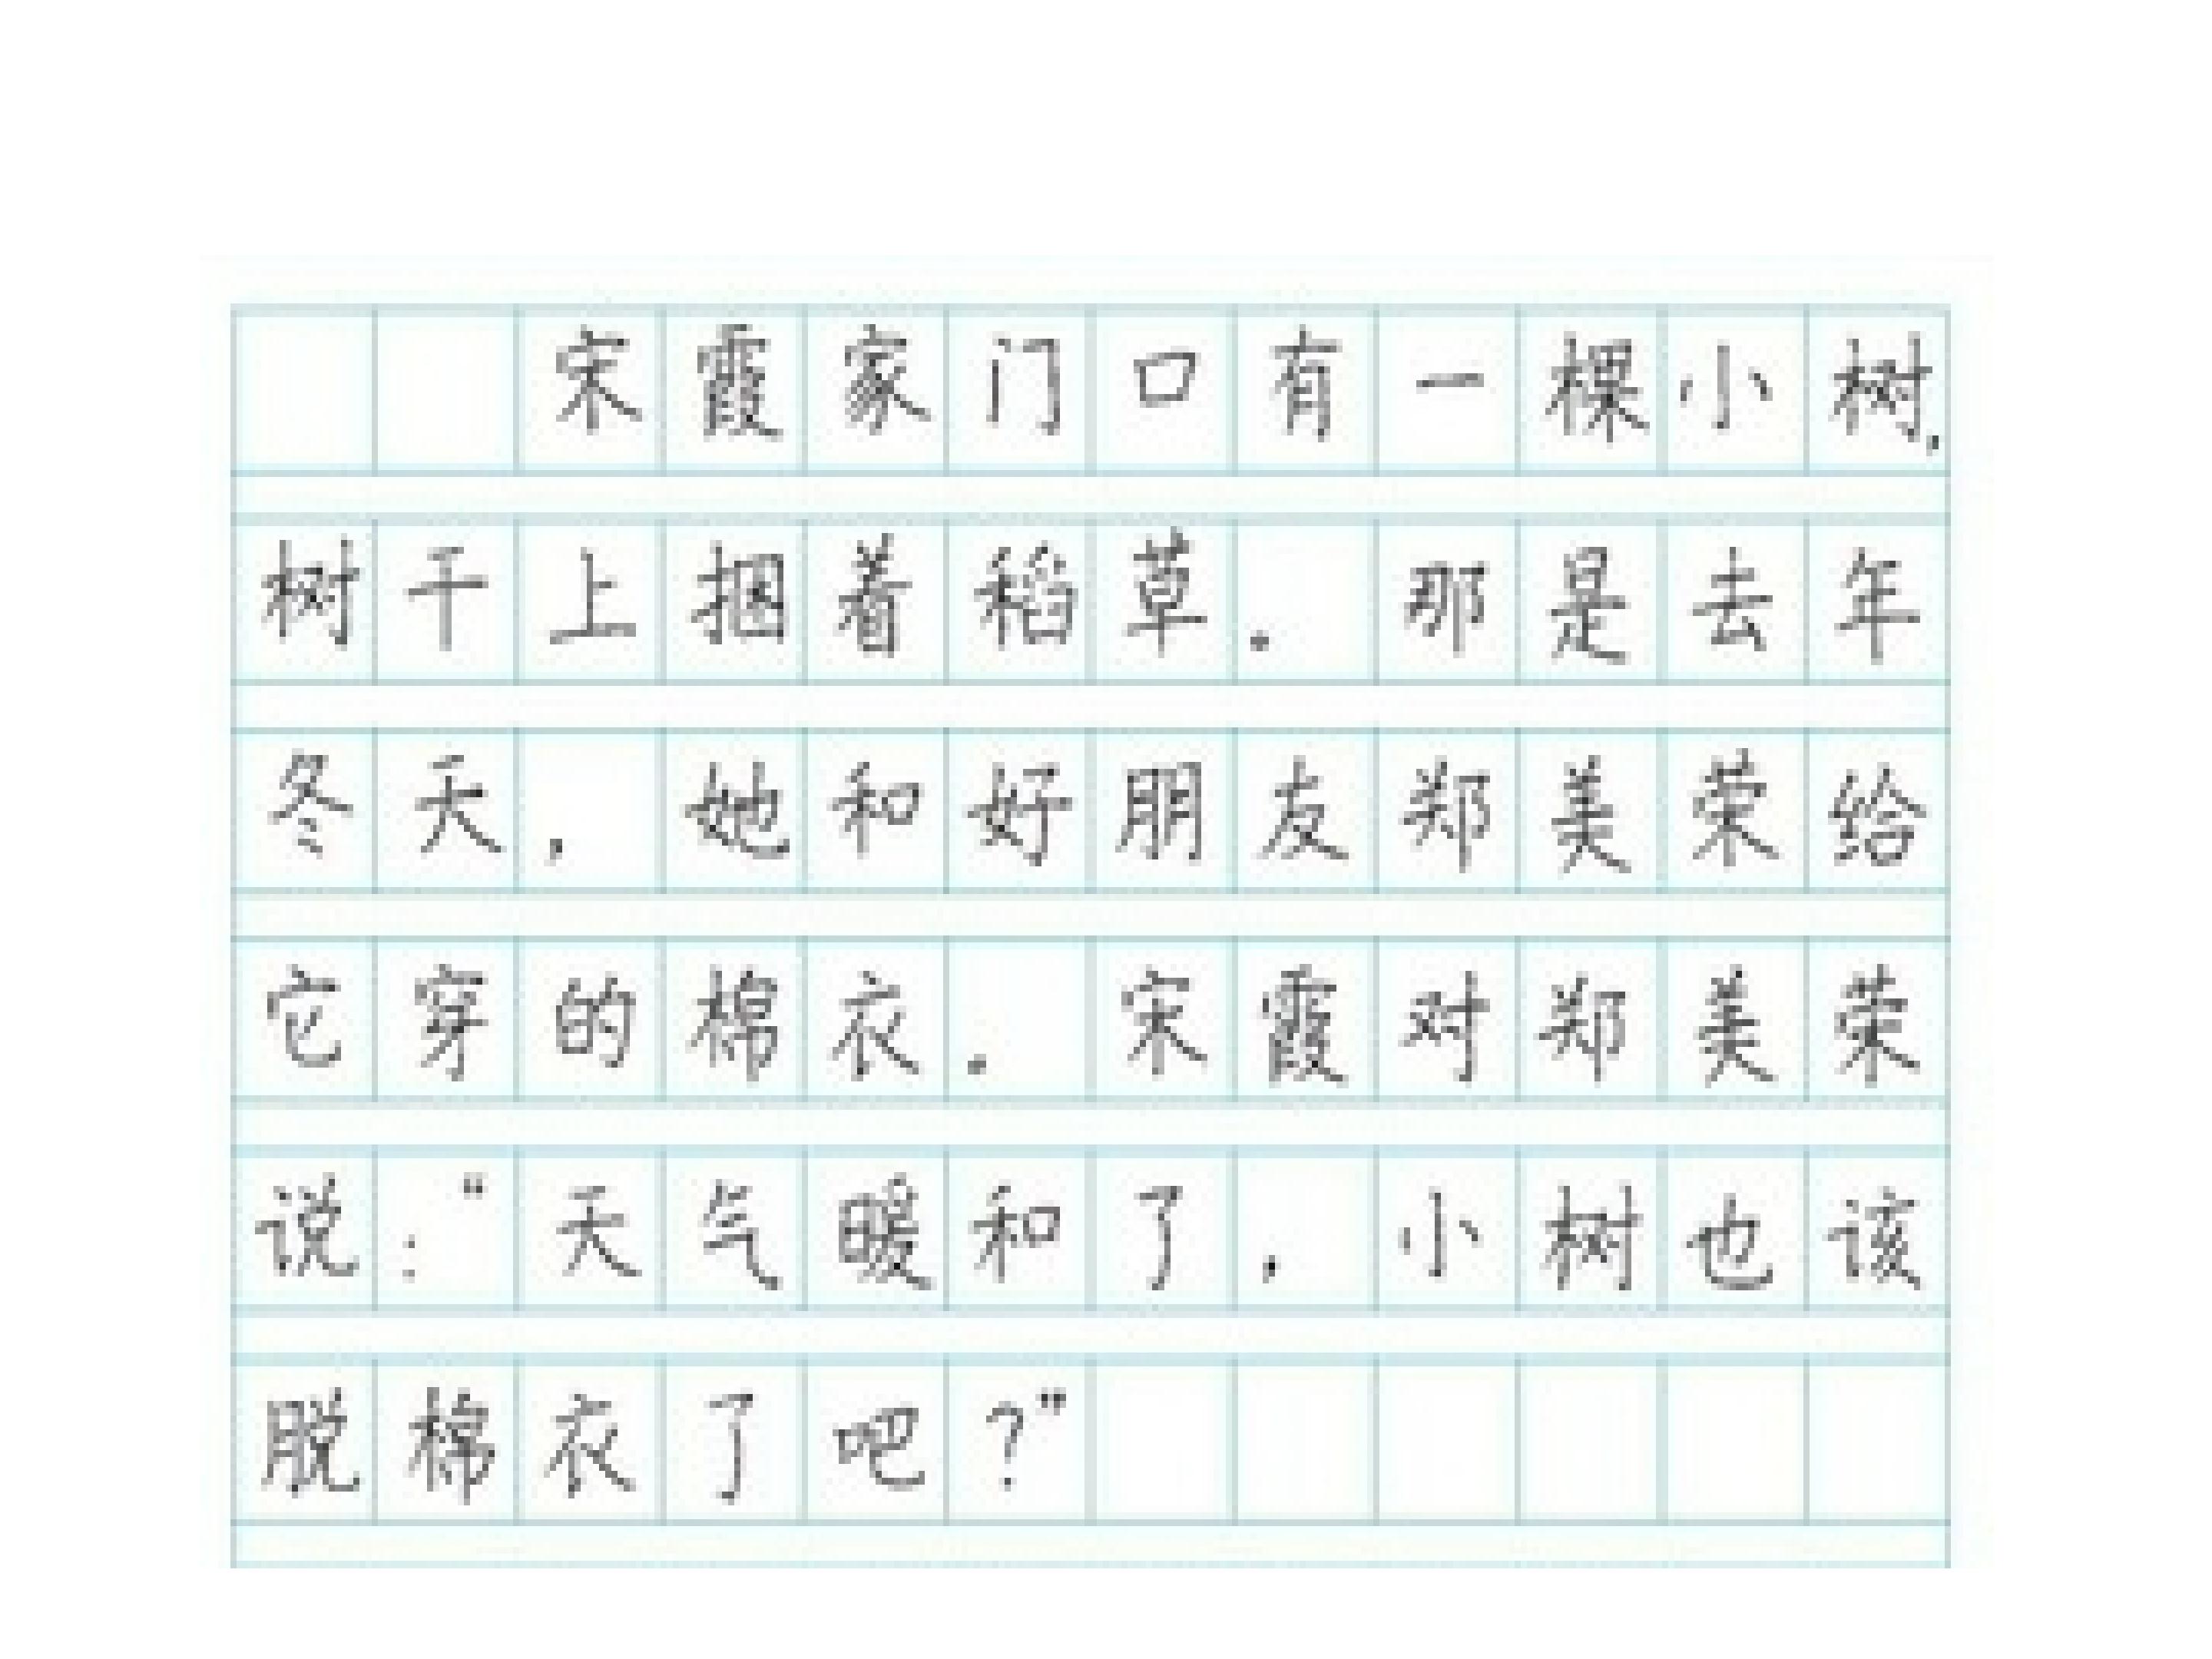 宋霞家门口有一棵小树，
树干上捆着稻草。那是去年
冬天，她和好朋友郑美荣给
它穿的棉衣。宋霞对郑美荣
说：“天气暖和了，小树也该
脱棉衣了吧？”